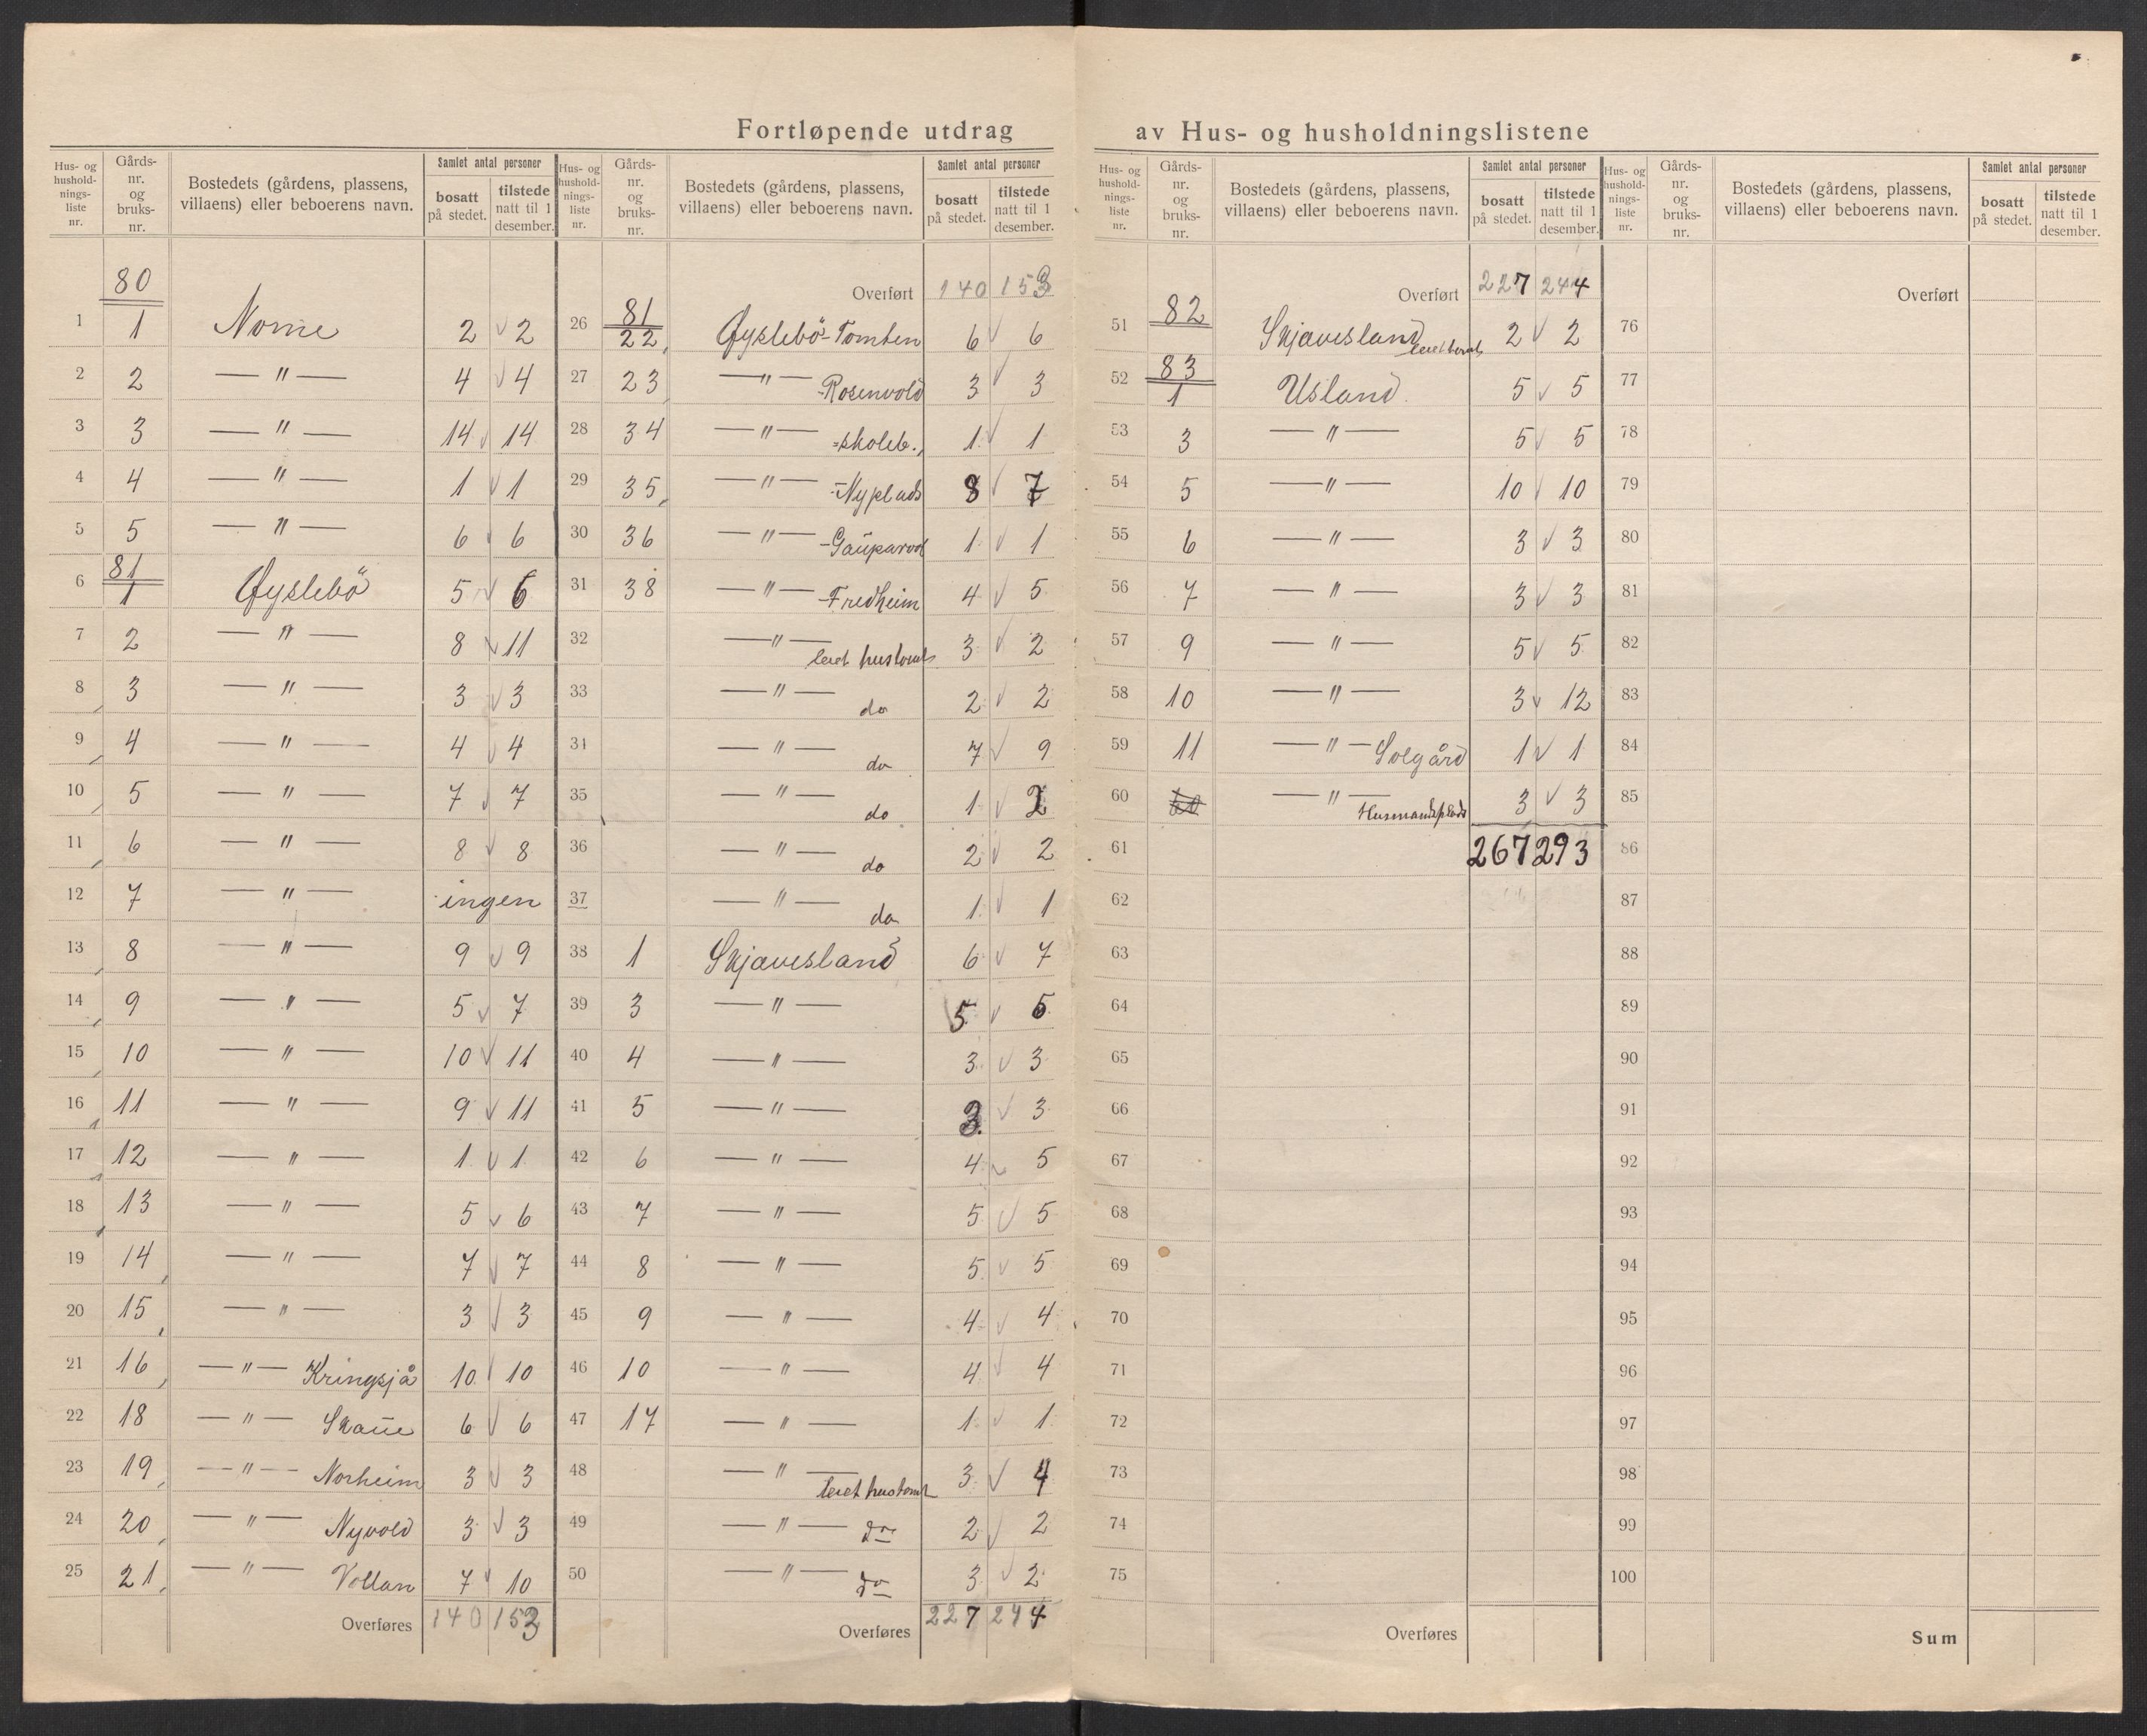 Fortløpende utdrag av Hus- og husholdningslistene
Hus- og hushold-nings-liste nr. | Gårds-nr. og bruks-nr. | Bostedets (gårdens, plassens, villaens) eller beboerens navn. | Samlet antal personer | bosatt på stedet. | tilstede natt til 1 desember.
80
1 1 Nome 2 2
2 2 — " — 4 4
3 3 — " — 14 14
4 4 — " — 1 1
5 5 — " — 6 6
81
6 1 Øyslebö 5 6
7 2 — " — 8 11
8 3 — " — 3 3
9 4 — " — 4 4
10 5 — " — 7 7
11 6 — " — 8 8
12 7 — " — ingen
13 8 — " — 9 9
14 9 — " — 5 7
15 10 — " — 10 11
16 11 — " — 9 11
17 12 — " — 1 1
18 13 — " — 5 6
19 14 — " — 7 7
20 15 — " — 3 3
21 16 — " — Kringsjå 10 10
22 18 — " — Skaue 6 6
23 19 — " — Norheim 3 3
24 20 — " — Nyvold 3 3
25 21 — " — Vollan 7 10
Overføres 140 153
Hus- og hushold-nings-liste nr. | Gårds-nr. og bruks-nr. | Bostedets (gårdens, plassens, villaens) eller beboerens navn. | Samlet antal personer | bosatt på stedet. | tilstede natt til 1 desember.
Overført 140 153
81
26 22 Øyslebö-Tomten 6 6
27 23 — " — -Rosenvold 3 3
28 34 — " — =skoleb. 1 1
29 35 — " — -Nyplads 8 7
30 36 — " — 1 1
31 38 — " — -Fredheim 4 5
32 — " — leiet hustomt 3 2
33 — " — do 2 2
34 — " — do 7 9
35 — " — do 1 2
36 — " — do 2 2
37 — " — do 1 1
38 1 Skjævesland 6 7
39 3 — " — 5 6
40 4 — " — 3 3
41 5 — " — 3 3
42 6 — " — 4 5
43 7 — " — 5 5
44 8 — " — 5 5
45 9 — " — 4 4
46 10 — " — 4 4
47 17 — " — 1 1
48 — " — leiet hustomt 3 4
49 — " — do 2 2
50 — " — do 3 2
Overføres 227 244
Hus- og hushold-nings-liste nr. | Gårds-nr. og bruks-nr. | Bostedets (gårdens, plassens, villaens) eller beboerens navn. | Samlet antal personer | bosatt på stedet. | tilstede natt til 1 desember.
Overført 227 244
82
51 Skjævesland leiet tomt 2 2
83
52 1 Usland 5 5
53 3 — " — 5 5
54 5 — " — 10 10
55 6 — " — 3 3
56 7 — " — 3 3
57 9 — " — 5 5
58 10 — " — 3 12
59 11 — " — Solgård 1 1
60 — " — Husmandsplads 3 3
61 267 293
62
63
64
65
66
67
68
69
70
71
72
73
74
75
Overføres
Hus- og hushold-nings-liste nr. | Gårds-nr. og bruks-nr. | Bostedets (gårdens, plassens, villaens) eller beboerens navn. | Samlet antal personer | bosatt på stedet. | tilstede natt til 1 desember.
Overført
76
77
78
79
80
81
82
83
84
85
86
87
88
89
90
91
92
93
94
95
96
97
98
99
100
Sum